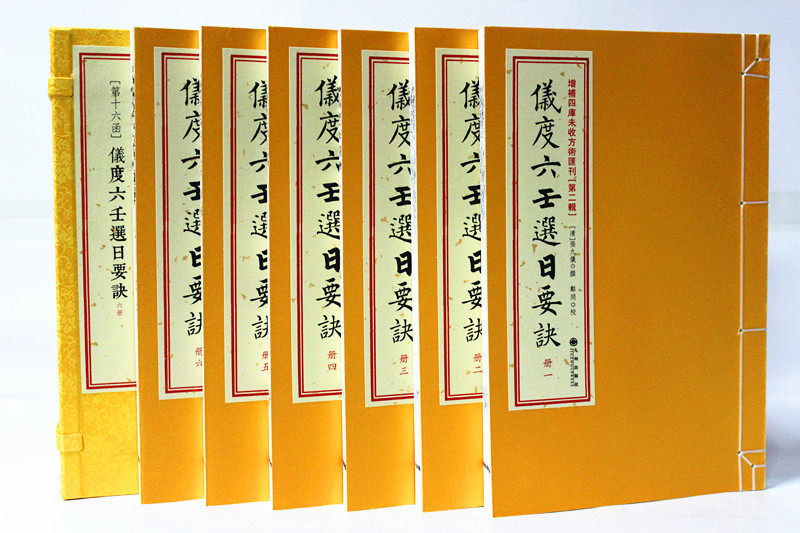 增補四庫未收方術匯刊[第二輯]
儀度六壬選日要訣
册一
[清]張九儀◎撰 鄭同◎校
九州出版社
JIUZHOUPRESS
儀度六壬選日要訣
册二
儀度六壬選日要訣
册三
儀度六壬選日要訣
册四
儀度六壬選日要訣
册五
儀度六壬選日要訣
册六
[第十六函]
儀度六壬選日要訣
六册